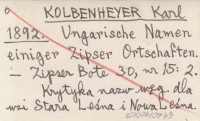 KOLBENHEYER Karl
1892. Ungarische Namen
einiger Zipser Ortschaften.
– Zipser Bote 30, nr 15: 2.
Krytyka nazw węg. dla
wsi Stara Leśna i Nowa Leśna.